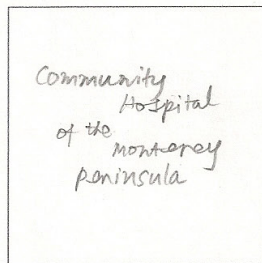 Community
Hospital
of the
Monterey
Peninsula